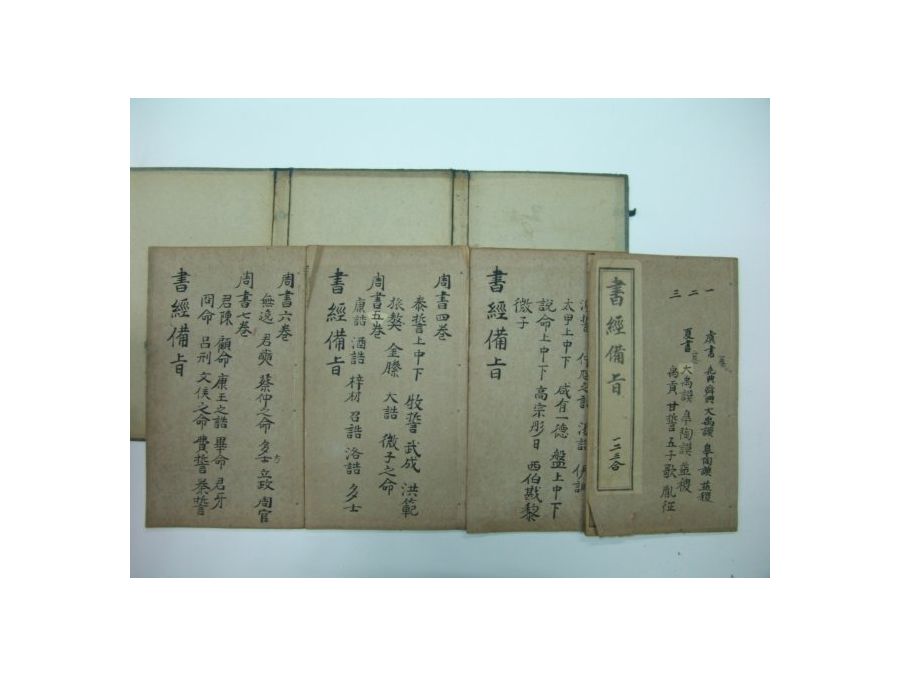 一二三
虞書 堯典 舜典 大禹謨 皐陶謨 益稷
大禹謨 皐陶謨 益稷
夏書
禹貢 甘誓 五子歌 胤征
書經備旨 一二三合
太甲上中下 咸有一德 盤上中下
說命上中下 高宗肜日 西伯戡黎
微子
書經備旨
周書四卷
泰誓上中下 牧誓 武成 洪範
旅獒 金縢 大誥 微子之命
周書五卷
康誥 酒誥 梓材 召誥 洛誥 多士
書經備旨
周書六卷
無逸 君奭 蔡仲之命 多士方 立政 周官
周書七卷
君陳 顧命 康王之誥 畢命 君牙
冏命 呂刑 文侯之命 費誓 秦誓
書經備旨